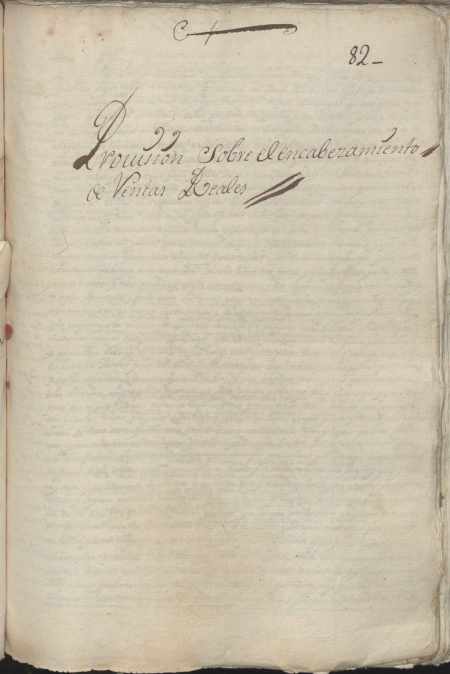 82-
Provision Sobre el encabezamiento
de Rentas Reales